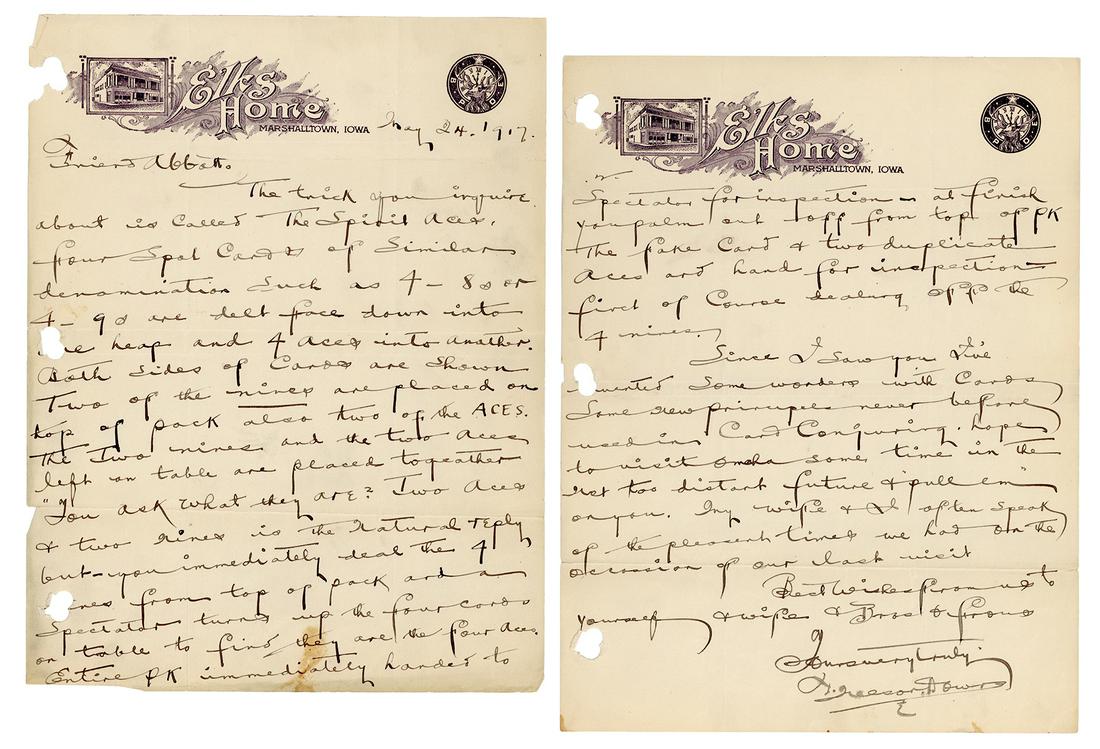 Elks
Home
MARSHALLTOWN, IOWA
B P O E
May 24. 1917.
Friend Abbott.
The trick you inquire
about is called The Spirit Aces.
four Spot Cards of Similar
denomination Such as 4 - 8s or
4 - 9s are delt face down into
one heap and 4 Aces into another.
Both sides of Cards are Shown
Two of the nines are placed on
top of pack also two of the ACES.
The Two nines and the two Aces
left on table are placed togeather
"You ask what they are? Two Aces
& two nines is the Natural reply
but - you immediately deal the 4
nines from top of pack and a
Spectator turns up the four cards
on table to find they are the four Aces.
Entire PK immediately handed to
Elks
Home
MARSHALLTOWN, IOWA
B P O E
Spectator for inspection - at finish
you palm out off from top of PK
The fake Card & two duplicate
Aces and hand for inspection -
first of Course dealing off the
4 nines.
Since I saw you I've
invented Some wonders with Cards
Some new principels never before
used in Card Conjuring. hope
to visit Omaha some time in the
not too distant future & pull em
on you. My wife & I often Speak
of the pleasent times we had on the
occassion of our last visit
Best Wishes from us to
yourself & wife & Bros &
Yours very truly.